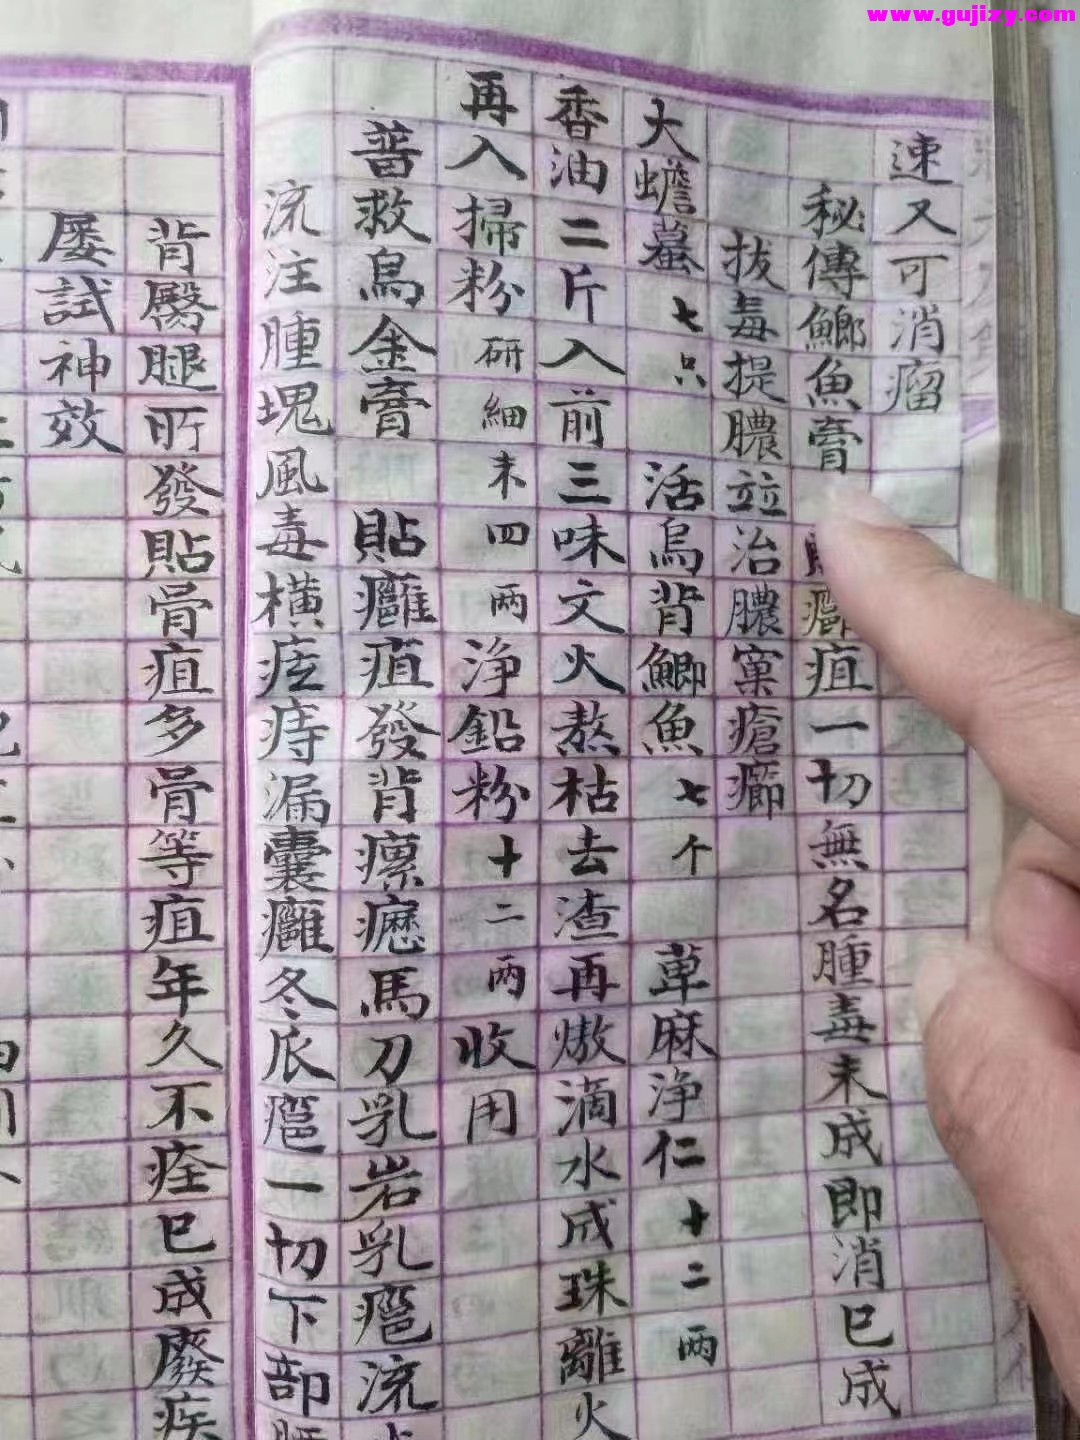 www.gujizy.com
速又可消瘤
秘傳鯽魚膏 疽一切無名腫毒未成即消已成
拔毒提膿並治膿窠瘡癤
大蟾蓦七只 活烏背鯽魚七个 萆麻净仁十二兩
香油二斤入前三味文火熬枯去渣再熬滴水成珠離火
再入掃粉研細末四兩净鉛粉十二兩收用
普救烏金膏 貼癰疽發背瘰癧馬刀乳岩乳疤流
流注腫塊風毒橫痃痔漏囊癰冬瓜疤一切下部
背臀腿所發貼骨疽多骨等疽年久不痊已成廢疾
屡試神效